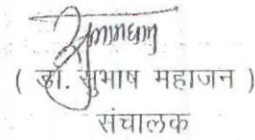 ( डॉ. सुभाष महाजन )
संचालक